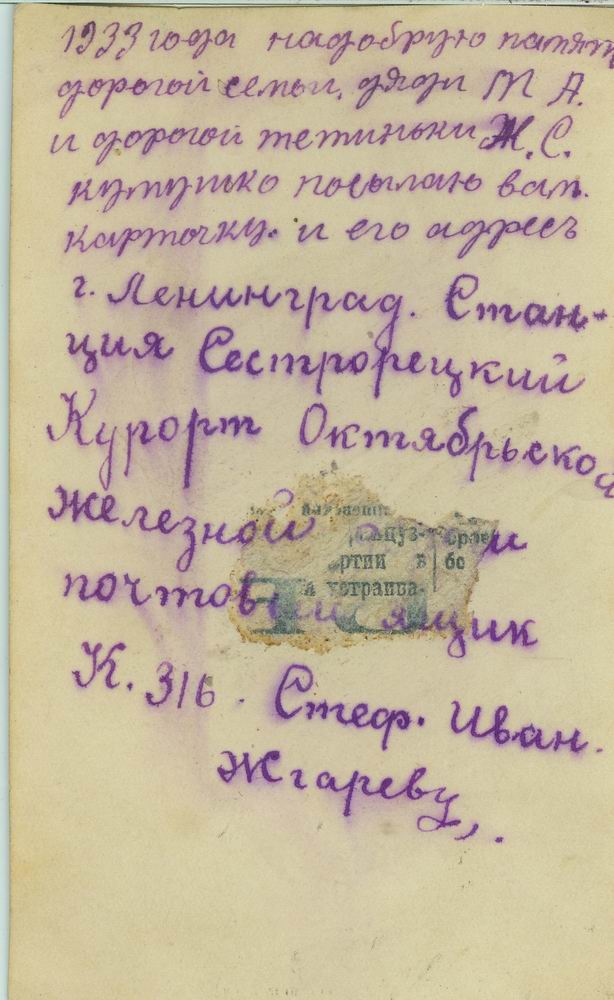 1933 года надобрую память
дорогой семьи. дяди М А.
и дорогой тетиньки Ж. С.
посылаю вам.
карточку. и его адресъ
г. Ленинград. Стан-
ция Сестрорецкий
Курорт Октябрьской
железной
почтовый ящик
К. 316. Стеф. Иван.
Жгареву,.
ртии в бо
устраива-